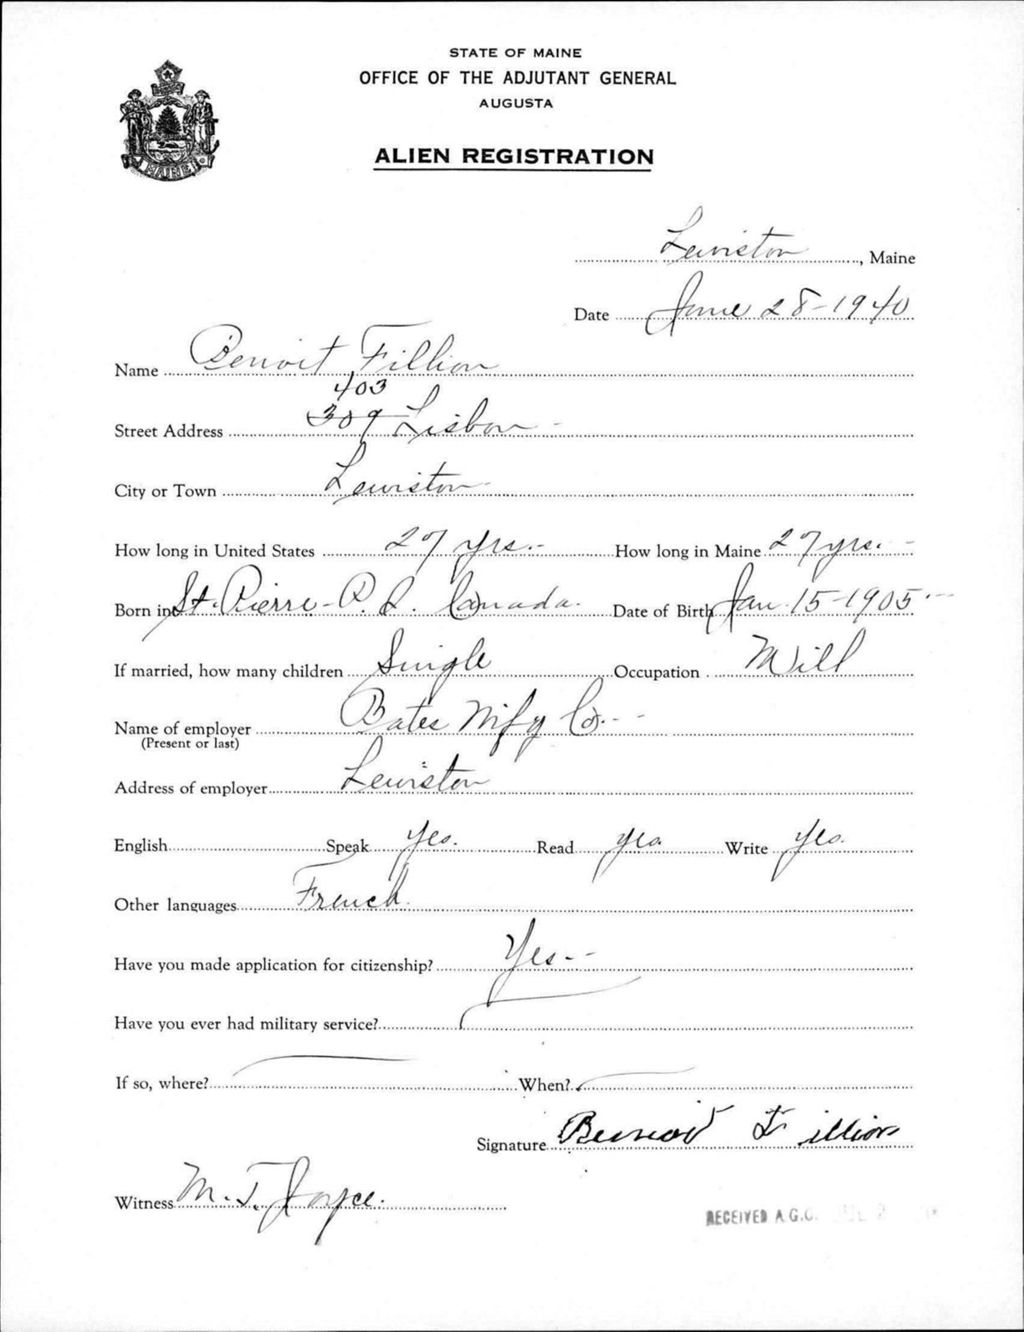 STATE OF MAINE
OFFICE OF THE ADJUTANT GENERAL
AUGUSTA
ALIEN REGISTRATION
MAINE
Lewiston, Maine
Date June 28-1940
Name Benoit Fillion
403
Street Address 309 Lisbon -
City or Town Lewiston
How long in United States 27 yrs.- How long in Maine 27 yrs. -
Born in St. Pierre - P. Q. Canada. Date of Birth Jan. 15-1905.
If married, how many children Single Occupation Mill
Name of employer Bates Mfg Co. - -
(Present or last)
Address of employer Lewiston
English Speak yes. Read yes Write yes.
Other languages French.
Have you made application for citizenship? Yes - -
Have you ever had military service?
If so, where? When?
Signature Benoit Fillion
Witness M. T. Joyce.
RECEIVED A.G.O.